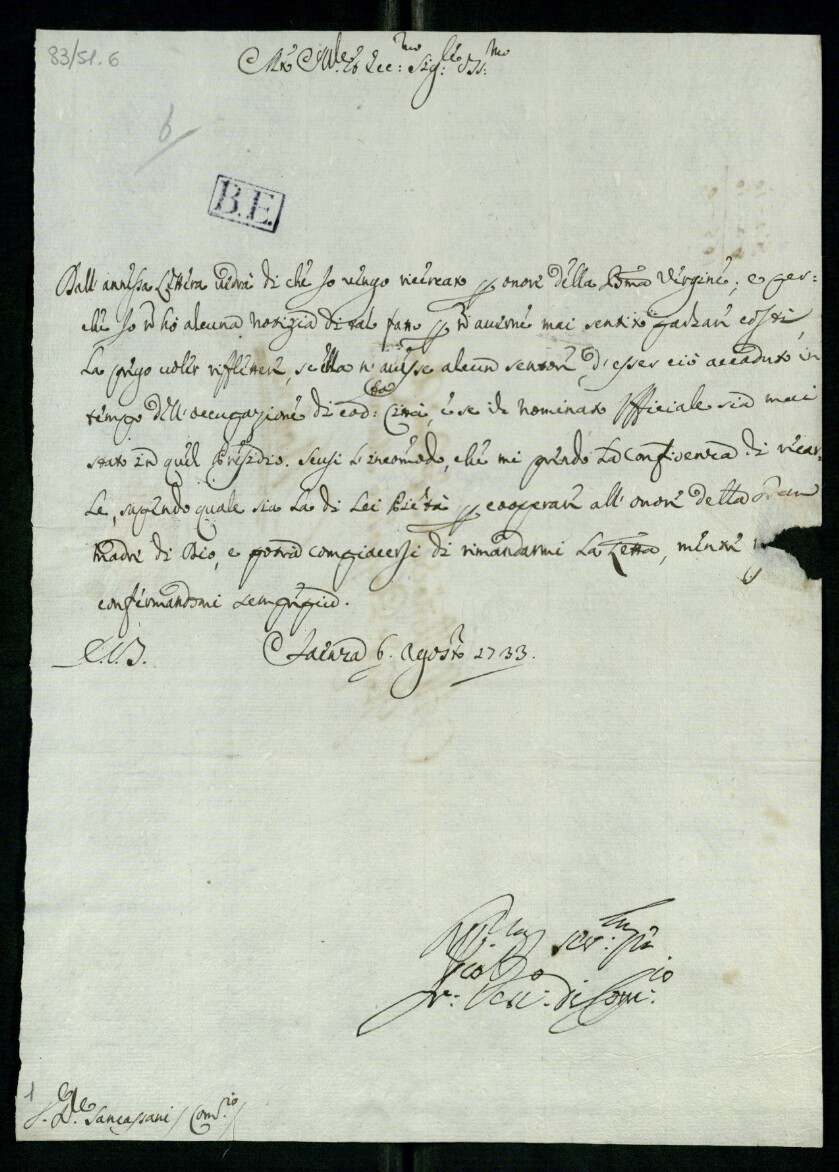 83/51.6
Mto Ill.re et Ecc:mo Sig:re Oss:mo
6
B.E.
Dall'annessa lettera uedrà di che io uengo ricercato p onore della Bma Vergine; e per-
che io ñ hò alcuna notizia di tal fatto p ñ auerne mai sentito parlare costì,
La prego uoler riflettere, se ella n'auesse alcun sentore d'esser ciò accaduto in
tempo dell'occupazione di cod:sta Città, e se il nominato Officiale sia mai
stato in quel Presidio. Scusi l'incomodo, che mi prendo la confidenza di recar-
Le, sapendo quale sia la di Lei Pietà p cooperare all'onore della Gran
Madre di Dio, e potrà compiacersi di rimandarmi la Lettra, mentre
confermandomi sempre più.
D.V.S. Faenza 6. Agosto 1733.
ser:
Vesc: di
1
S. Dre Sancassani / Com:io